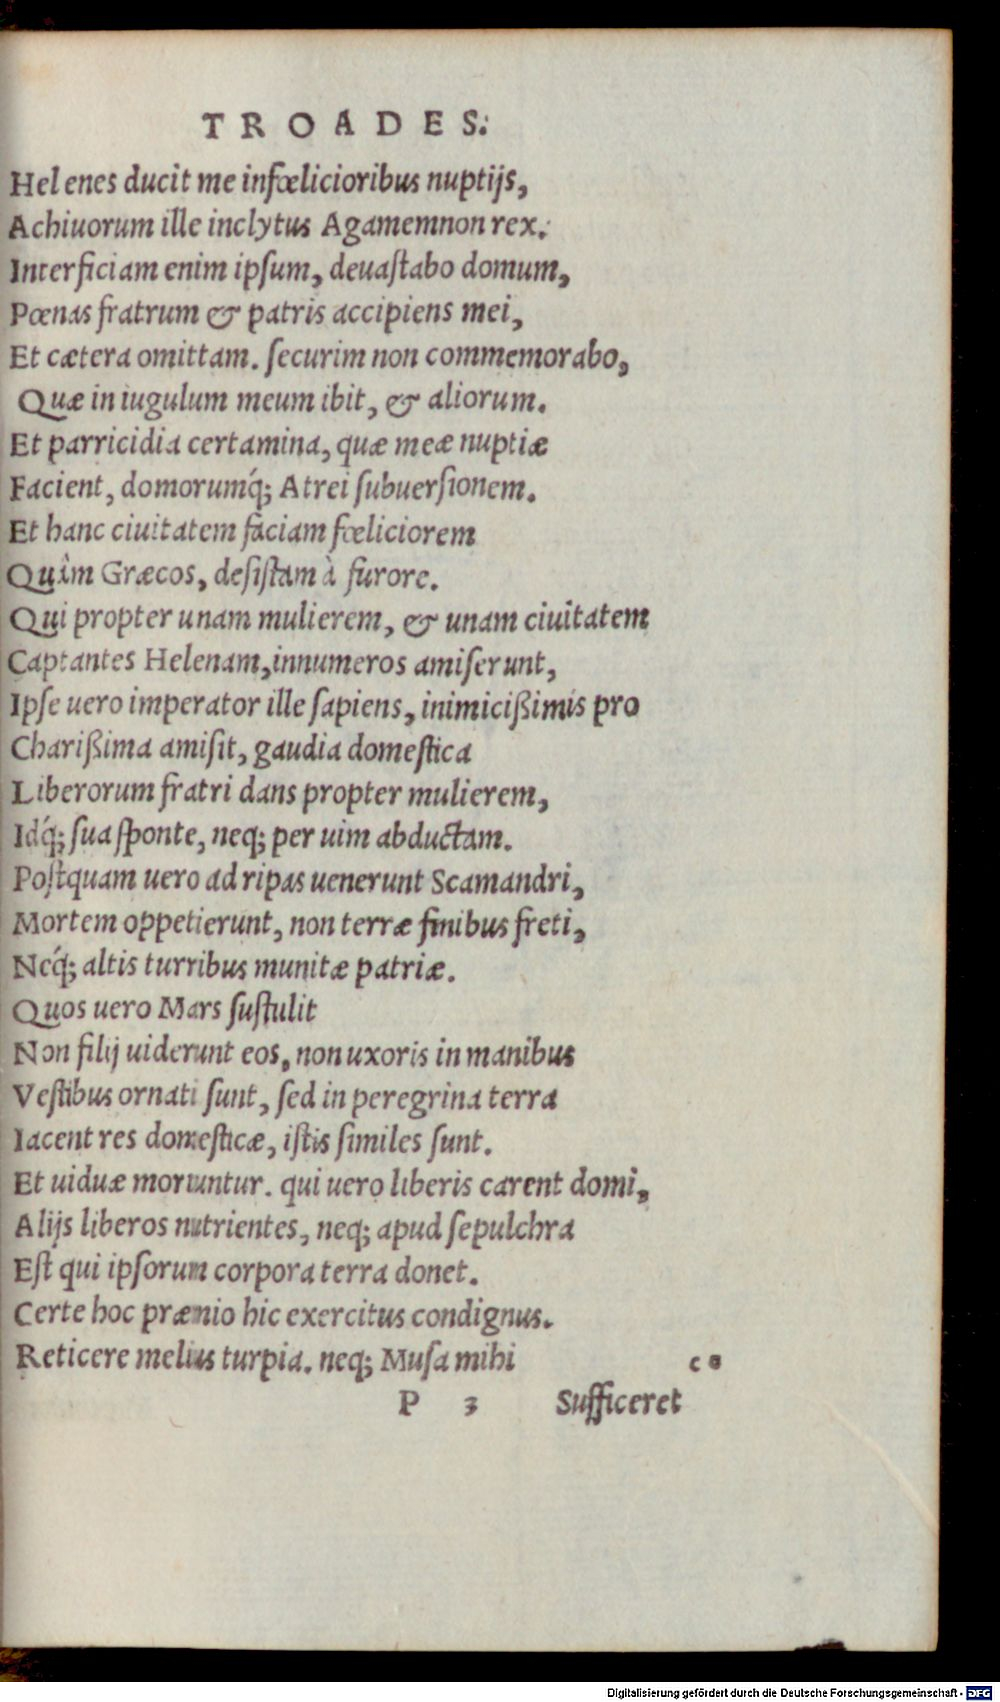 TROADES.
Helenes ducit me infœlicioribus nuptijs,
Achiuorum ille inclytus Agamemnon rex.
Interficiam enim ipſum, deuaſtabo domum,
Pœnas fratrum & patris accipiens mei,
Et cætera omittam. ſecurim non commemorabo,
Quæ in iugulum meum ibit, & aliorum.
Et parricidia certamina, quæ meæ nuptiæ
Facient, domorumq́; Atrei ſubuerſionem.
Et hanc ciuitatem faciam fœliciorem
Quàm Græcos, deſiſtam à furore.
Qui propter unam mulierem, & unam ciuitatem
Captantes Helenam, innumeros amiſerunt,
Ipſe uero imperator ille ſapiens, inimicißimis pro
Charißima amiſit, gaudia domeſtica
Liberorum fratri dans propter mulierem,
Idq́; ſua ſponte, neq; per uim abductam.
Poſtquam uero ad ripas uenerunt Scamandri,
Mortem oppetierunt, non terræ finibus freti,
Neq́; altis turribus munitæ patriæ.
Quos uero Mars ſuſtulit
Non filij uiderunt eos, non uxoris in manibus
Veſtibus ornati ſunt, ſed in peregrina terra
Iacent res domeſticæ, iſtis ſimiles ſunt.
Et uiduæ moriuntur. qui uero liberis carent domi,
Alijs liberos nutrientes, neq; apud ſepulchra
Eſt qui ipſorum corpora terra donet.
Certe hoc præmio hic exercitus condignus.
Reticere melius turpia. neq; Muſa mihi
P 3 Sufficeret
Digitalisierung gefördert durch die Deutsche Forschungsgemeinschaft - DFG